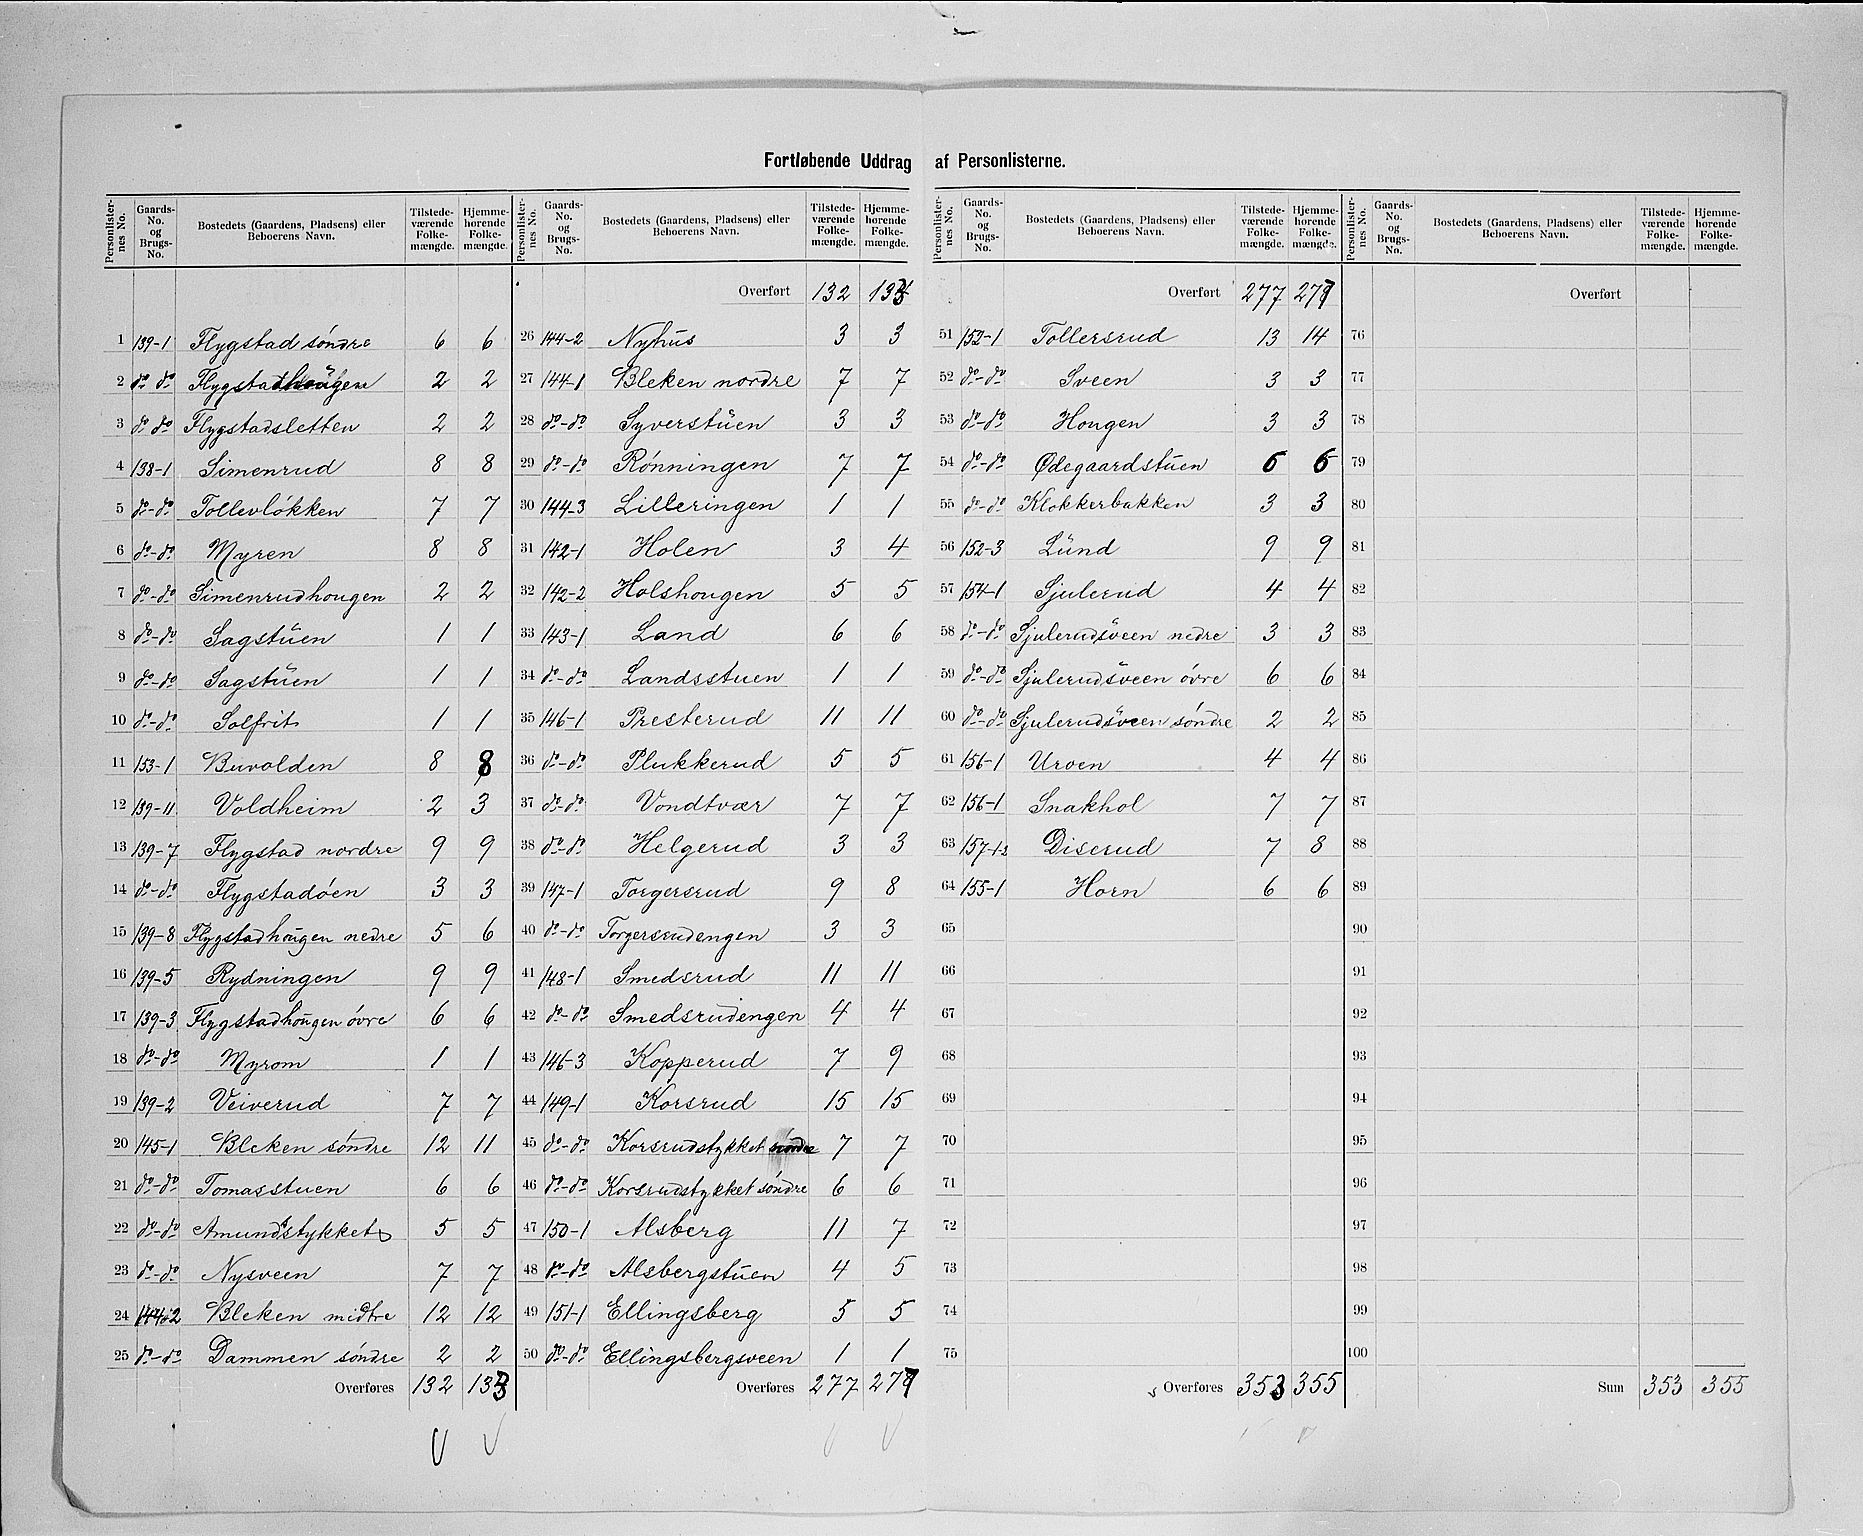 Fortløbende Uddrag af Personlisterne.
Personlisternes No. Gaards-No. og Brugs-No. Bostedets (Gaardens, Pladsens) eller Beboerens Navn. Tilstedeværende Folkemængde. Hjemmehørende Folkemængde.
1 139-1 Flygstad söndre 6 6
2 do do Flygstadhougen 2 2
3 do do Flygstadsletten 2 2
4 138-1 Simenrud 8 8
5 do-do Tollevlökken 7 7
6 do-do Myren 8 8
7 do-do Simenrudhougen 2 2
8 do-do Sagstuen 1 1
9 do-do Sagstuen 1 1
10 do-do Solfrit 1 1
11 153-1 Buvolden 8 8
12 139-11 Voldheim 2 3
13 139-7 Flygstad nordre 9 9
14 do-do Flygstadöen 3 3
15 139-8 Flygstadhougen nedre 5 6
16 139-5 Rydningen 9 9
17 139-3 Flygstadhougen övre 6 6
18 do-do Myrom 1 1
19 139-2 Veiverud 7 7
20 145-1 Bleken söndre 12 11
21 do-do Tomasstuen 6 6
22 do-do Amundstykket 5 5
23 do-do Nysveen 7 7
24 Bleken midtre 12 12
25 do-do Dammen söndre 2 2
Overføres 132 133
Personlisternes No. Gaards-No. og Brugs-No. Bostedets (Gaardens, Pladsens) eller Beboerens Navn. Tilstedeværende Folkemængde. Hjemmehørende Folkemængde.
Overført 132 133
26 144-2 Nyhus 3 3
27 144-1 Bleken nordre 7 7
28 do-do Syverstuen 3 3
29 do-do Rönningen 7 7
30 144-3 Lilleringen 1 1
31 142-1 Holen 3 4
32 142-2 Holshougen 5 5
33 143-1 Land 6 6
34 do-do Landsstuen 1 1
35 146-1 Presterud 11 11
36 do-do Plukkerud 5 5
37 do-do Vondtvær 7 7
38 do-do Helgerud 3 3
39 147-1 Torgersrud 9 8
40 do-do Torgersrudengen 3 3
41 148-1 Smedsrud 11 11
42 do-do Smedsrudengen 4 4
43 146-3 Kopperud 7 9
44 149-1 Korsrud 15 15
45 do-do Korsrudstykket söndre 7 7
46 do-do Korsrudstykket söndre 6 6
47 150-1 Alsberg 11 7
48 do-do Alsbergstuen 4 5
49 151-1 Ellingsberg 5 5
50 do-do Ellingsbergsveen 1 1
Overføres 277 277
Personlisternes No. Gaards-No. og Brugs-No. Bostedets (Gaardens, Pladsens) eller Beboerens Navn. Tilstedeværende Folkemængde. Hjemmehørende Folkemængde.
Overført 277 277
51 152-1 Tollersrud 13 14
52 do-do Sveen 3 3
53 do-do Hougen 3 3
54 do-do Ødegaardstuen 6 6
55 do-do Klokkerbakken 3 3
56 152-3 Lund 9 9
57 154-1 Sjulerud 4 4
58 do-do Sjulerudsveen nedre 3 3
59 do-do Sjulerudsveen övre 6 6
60 do-do Sjulerudsveen söndre 2 2
61 156-1 Uroen 4 4
62 156-1 Snakhol 7 7
63 157-1-2 Diserud 7 8
64 155-1 Horn 6 6
65
66
67
68
69
70
71
72
73
74
75
Overføres 353 355
Personlisternes No. Gaards-No. og Brugs-No. Bostedets (Gaardens, Pladsens) eller Beboerens Navn. Tilstedeværende Folkemængde. Hjemmehørende Folkemængde.
Overført
76
77
78
79
80
81
82
83
84
85
86
87
88
89
90
91
92
93
94
95
96
97
98
99
100
Sum 353 355